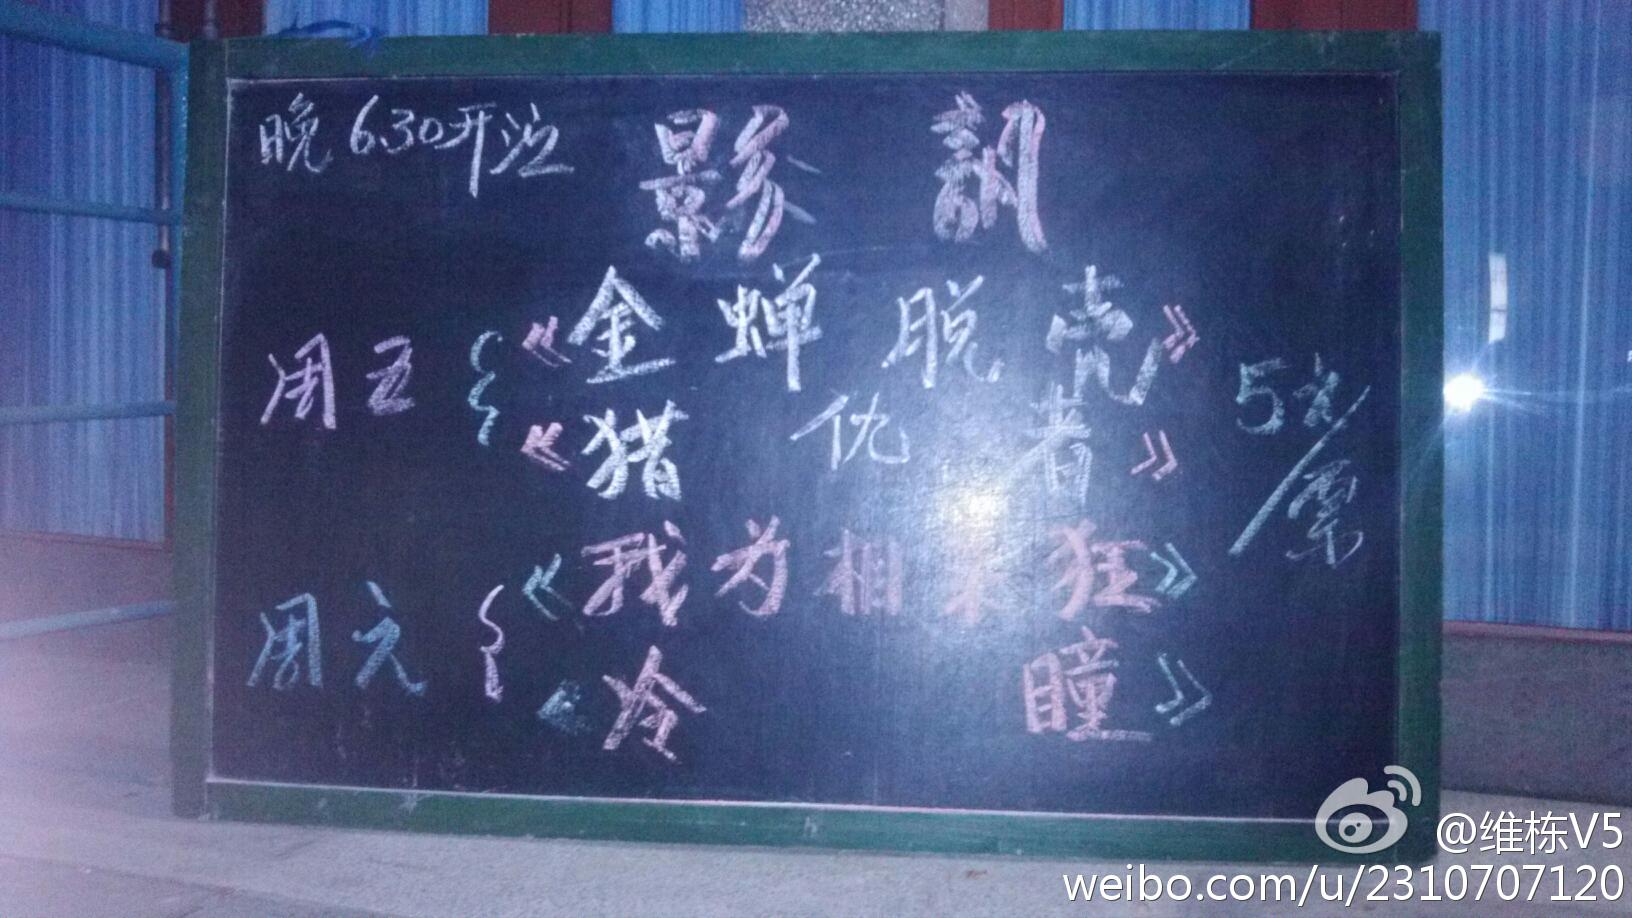 晚6.30开
影 訊
周五 《金蝉脱壳》
《猎仇者》
5元/票
周六 《我为相亲狂》
《冷瞳》
@维栋V5
weibo.com/u/2310707120